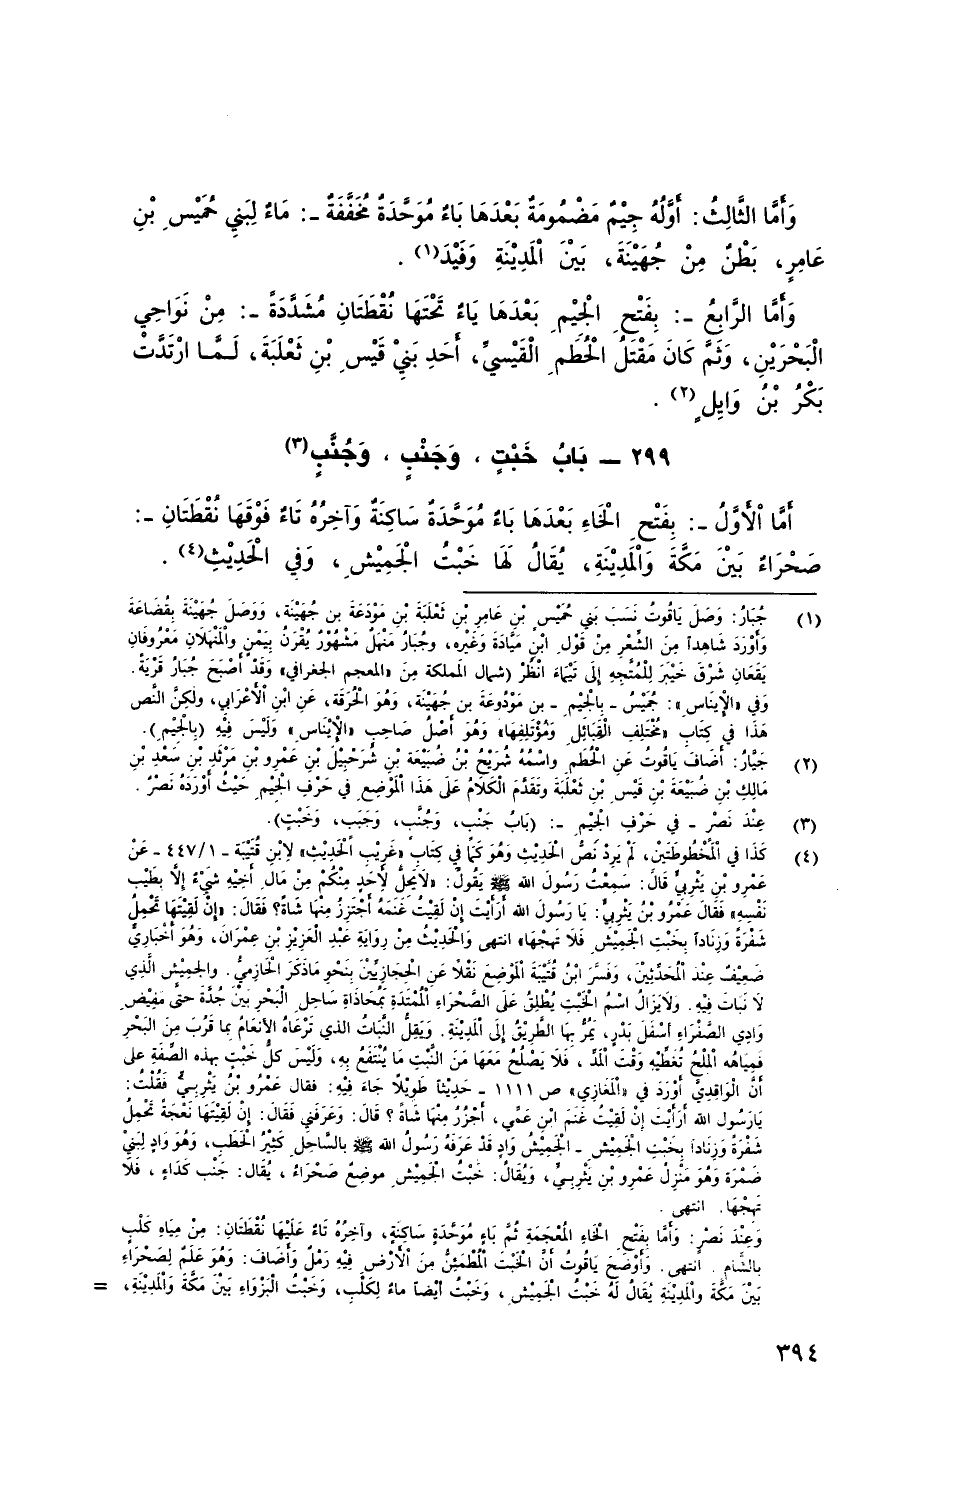 وَأَمَّا الثَّالِثُ: أَوَّلُهُ جِيْمٌ مَضْمُومَةٌ بَعْدَهَا بَاءٌ مُوَحَّدَةٌ مُخَفَّفَةٌ -: مَاءٌ لِبَنِي حُمَيْسِ بْنِ
عَامِرٍ، بَطْنٌ مِنْ جُهَيْنَةَ، بَيْنَ الْمَدِيْنَةِ وَفَيْدَ(١) .
وَأَمَّا الرَّابِعُ -: بِفَتْحِ الْجِيْمِ بَعْدَهَا يَاءٌ تَحْتَهَا نُقْطَتَانِ مُشَدَّدَةً -: مِنْ نَوَاحِي
الْبَحْرَيْنِ، وَثَمَّ كَانَ مَقْتَلُ الْحُطَمِ الْقَيْسيِّ، أَحَدِ بَنِيْ قَيْسِ بْنِ ثَعْلَبَةَ، لَـمَّا ارْتَدَّتْ
بَكْرُ بْنُ وَايِلٍ(٢) .
٢٩٩ - بَابُ خَبْتٍ ، وَجَنْبٍ ، وَجُنَّبٍ(٣)
أَمَّا الْأَوَّلُ -: بِفَتْحِ الْخَاءِ بَعْدَهَا بَاءٌ مُوَحَّدَةٌ سَاكِنَةٌ وَآخِرُهُ تَاءٌ فَوْقَهَا نُقْطَتَانِ -:
صَحْرَاءُ بَيْنَ مَكَّةَ وَالْمَدِيْنَةِ، يُقَالُ لَهَا خَبْتُ الْجَمِيْشِ، وَفِي الْحَدِيْثِ(٤) .
(١) جُبَارُ: وَصَلَ يَاقُوتُ نَسَبَ بَنِي حُمَيْسِ بْنِ عَامِرِ بْنِ ثَعْلَبَةَ بْنِ مَوْدَعَةَ بن جُهَيْنَةَ، وَوَصَلَ جُهَيْنَةَ بِقُضَاعَةَ
وَأَوْرَدَ شَاهِداً مِنَ الشِّعْرِ مِنْ قَوْلِ ابْنِ مَيَّادَةَ وَغَيْرِهِ، وجُبَارُ مَنْهَلٌ مَشْهُوْرٌ يُقْرَنُ بِيَمْنٍ والْمَنْهَلَانِ مَعْرُوفَانِ
يَقَعَانِ شَرْقَ خَيْبَرَ لِلْمُتَّجِهِ إِلَى تَيْمَاءَ انْظُرْ (شمال المملكة مِنَ «المعجم الجغرافي» وَقَدْ أَصْبَحَ جُبَارُ قَرْيَةً.
وَفِي «الإِيناس»: جُمَيْسُ - بِالْجِيْمِ - بن مَوْدُوعَةَ بن جُهَيْنَةَ، وَهُوَ الْحُرَقَة، عَنِ ابْنِ الْأَعْرَابِي، ولكِنَّ النَّص
هَذَا فِي كِتَابِ «مُخْتَلِفِ الْقَبَائِلِ وَمُؤْتَلِفِهَا» وَهُوَ أَصْلُ صَاحِبِ «الْإِيْنَاسِ» وَلَيْسَ فِيْهِ (بِالْجِيْمِ).
(٢) جَيَّارُ: أَضَافَ يَاقُوتُ عَنِ الْحُطَمِ واسْمُهُ شُرَيْحُ بْنُ ضُبَيْعَةَ بْنِ شُرَحْبِيْلَ بْنِ عَمْرِو بْنِ مَرْثَدِ بْنِ سَعْدِ بْنِ
مَالِكِ بْنِ ضُبَيْعَةَ بْنِ قَيْسِ بْنِ ثَعْلَبَةَ وتَقَدَّمَ الْكَلَامُ عَلَى هَذَا الْمَوْضِعِ فِي حَرْفِ الْجِيْمِ حَيْثُ أَوْرَدَهُ نَصْرٌ .
(٣) عِنْدَ نَصْرٍ - فِي حَرْفِ الْجِيْمِ -: (بَابُ جَنْبٍ، وَجُنَّبٍ، وَجَبَبٍ، وَخَبْتٍ).
(٤) كَذَا فِي الْمَخْطُوطَتَيْنِ، لَمْ يَرِدْ نَصُّ الْحَدِيْثِ وَهُوَ كَمَا فِي كِتَابِ «غَرِيْبِ الْحَدِيْثِ» لِابْنِ قُتَيْبَةَ - ٤٤٧/١ - عَنْ
عَمْرِو بْنِ يَثْرِبِيٍّ قَالَ: سَمِعْتُ رَسُولَ الله ﷺ يَقُولُ: «لَايَحِلُّ لِأَحَدٍ مِنْكُمْ مِنْ مَالِ أَخِيْهِ شَيْءٌ إِلَّا بِطِيْبِ
نَفْسِهِ» فَقَالَ عَمْرُو بْنُ يَثْرِبيٍّ: يَا رَسُولَ الله أَرَأَيْتَ إِنْ لَقِيْتُ غَنَمَهُ أَجْتَزِرُ مِنْهَا شَاةً؟ فَقَالَ: «إِنْ لَقِيْتَهَا تَحْمِلُ
شَفْرَةً وَزِنَاداً بِخَبْتِ الْجَمِيْشِ فَلَا تَهِجْهَا» انتهى وَالْحَدِيْثُ مِنْ رِوَايَةِ عَبْدِ الْعَزِيْزِ بْنِ عِمْرَانَ، وَهُوَ أَخْبَارِيٌّ
ضَعِيْفٌ عِنْدَ الْمُحَدِّثِيْنَ، وَفَسَّرَ ابْنُ قُتَيْبَةَ الْمَوْضِعَ نَقْلًا عَنِ الْحِجَازِيِّيْنَ بِنَحْوِ مَاذَكَرَ الْحَازِمِيُّ. والجَمِيْش الَّذِي
لَا نَبَاتَ فِيْهِ. وَلَايَزَالُ اسْمُ الْخَبْتِ يُطْلَقُ عَلَى الصَّحْرَاءِ الْمُمْتَدَّةِ بِمُحَاذَاةِ سَاحِلِ الْبَحْرِ بَيْنَ جُدَّةَ حَتَّى مَفِيْضِ
وَادِي الصَّفْرَاءِ أَسْفَلَ بَدْرٍ، يَمُرُّ بِهَا الطَّرِيْقُ إِلَى الْمَدِيْنَةِ. وَيَقِلُّ النَّبَاتُ الذي تَرْعَاهُ الأَنعَامُ بِمَا قَرُبَ مِنَ الْبَحْرِ
فَمِيَاهُه الْمِلْحُ تُغَطِّيْهِ وَقْتَ الْمَدِّ ، فَلَا يَصْلُحُ مَعَهَا مَنَ النَّبْتِ مَا يُنْتَفَعُ بِهِ، وَلَيْسَ كلُّ خَبْتٍ بهذه الصِّفَةِ على
أَنَّ الْوَاقِدِيَّ أَوْرَدَ فِي «الْمَغَازِي» ص ١١١١ - حَدِيْثاً طَوِيْلًا جَاءَ فِيْهِ: فقال عَمْرُو بْنُ يَثْرِبيٍّ فَقُلْتُ:
يَارَسُولَ الله أَرَأَيْتَ إِنْ لَقِيْتُ غَنَمَ ابْنِ عَمِّي، أَجْزُرُ مِنْهَا شَاةً ؟ قَالَ: وَعَرَفَنِي فَقَالَ: إِنْ لَقِيْتَهَا نَعْجَةً تَحْمِلُ
شَفْرَةً وَزِنَاداً بِخَبْتِ الْجَمِيْشِ - الْجَمِيْشُ وَادٍ قَدْ عَرَفَهُ رَسُولُ الله ﷺ بالسَّاحِلِ كَثِيْرُ الْحَطَبِ، وَهُوَ وَادٍ لِبَنِيْ
ضَمْرَةَ وَهُوَ مَنْزِلُ عَمْرِو بْنِ يَثْرِبيٍّ، وَيُقَالُ: خَبْتُ الْجَمِيْشِ موضعُ صَحْرَاءُ ، يُقَال: جَنْب كَدَاءٍ ، فَلَا
تَهِجْهَا. انتهى .
وَعِنْدَ نَصْرٍ: وَأَمَّا بِفَتْحِ الْخَاءِ الْمُعْجَمَةِ ثُمَّ بَاءٍ مُوَحَّدَةٍ سَاكِنَةٍ، وآخِرُهُ تَاءٌ عَلَيْهَا نُقْطَتَانِ: مِنْ مِيَاهِ كَلْبٍ
بالشَّامِ . انتهى. وَأَوْضَحَ يَاقُوتُ أَنَّ الْخَبْتَ الْمُطْمَئِنُّ مِنَ الْأَرْضِ فِيْهِ رَمْلٌ وَأَضَافَ: وَهُوَ عَلَمٌ لِصَحْرَاءَ
بَيْنَ مَكَّةَ والْمَدِيْنَةِ يُقَالُ لَهُ خَبْتُ الْجَمِيْشِ، وَخَبْتُ أيْضاً ماءٌ لِكَلْبٍ، وَخَبْتُ الْبَزْوَاءِ بَيْنَ مَكَّةَ وَالْمَدِيْنَةِ، =
٣٩٤